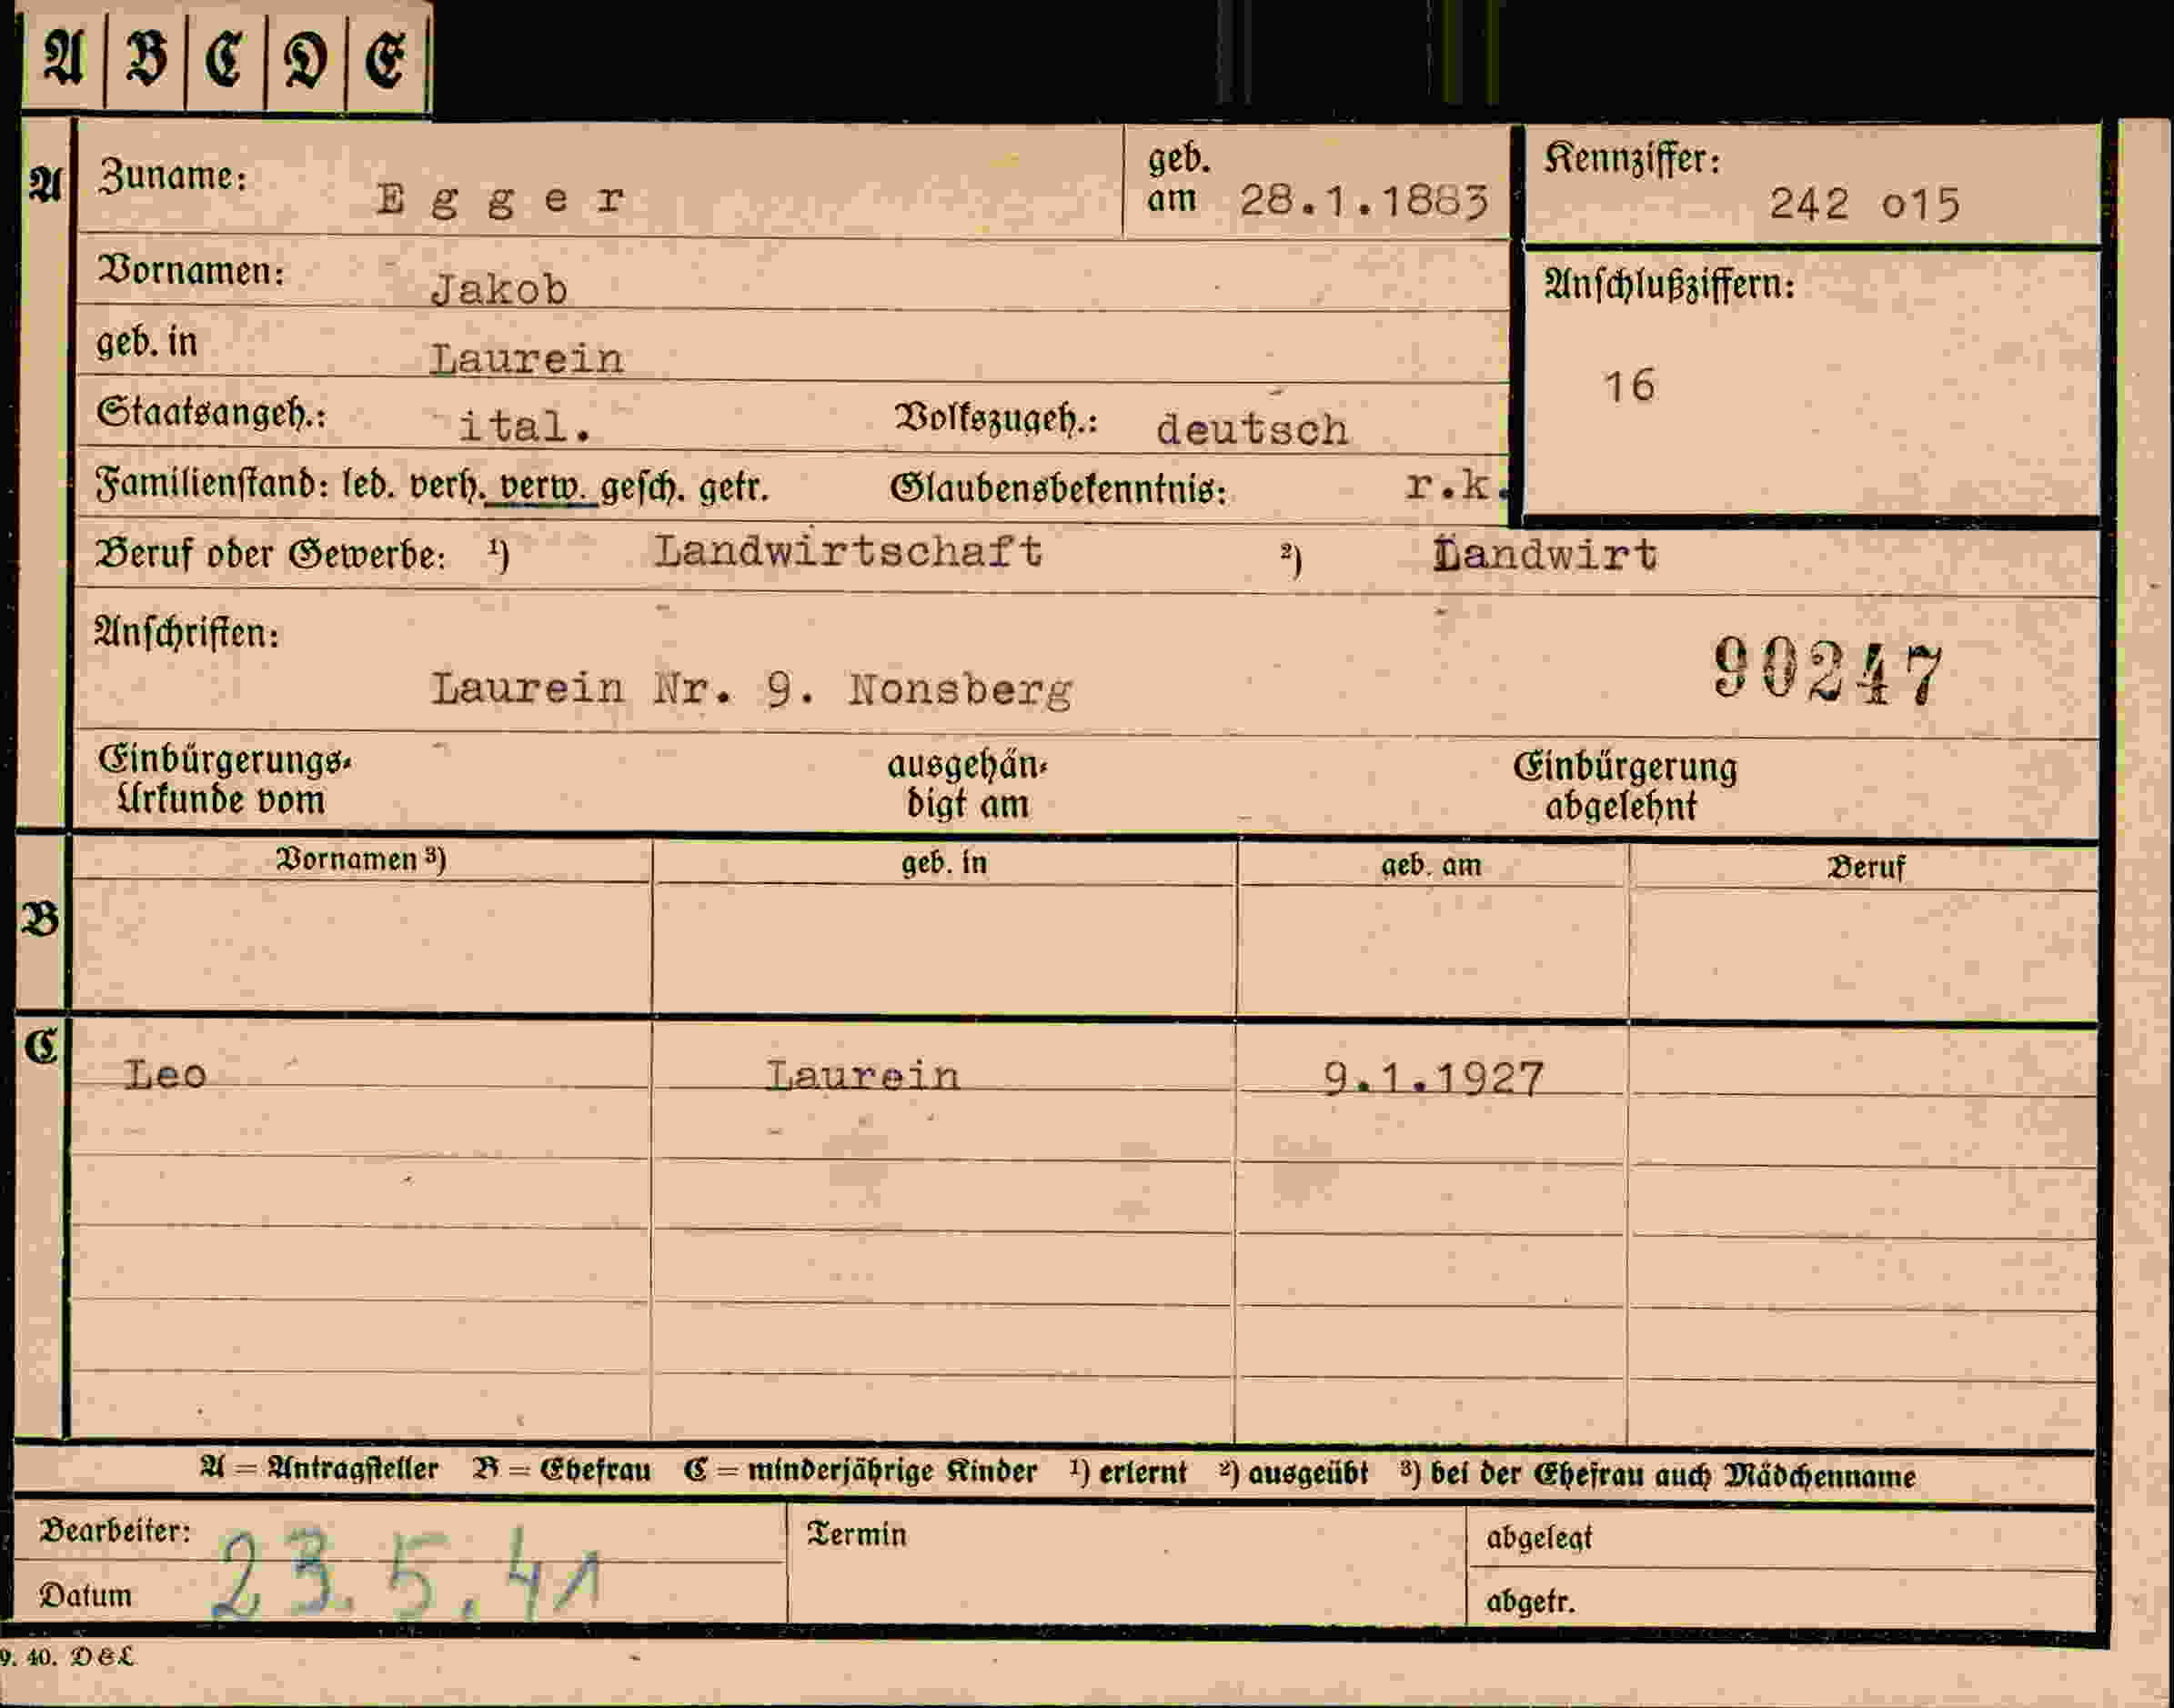 A B C D E
A Zuname: Egger geb. am 28.1.1883 Kennziffer: 242 o15
Vornamen: Jakob Anschlußziffern:
geb. in Laurein 16
Staatsangeh.: ital. Volkszugeh.: deutsch
Familienstand: led. verh. verw. gesch. getr. Glaubensbekenntnis: r.k.
Beruf oder Gewerbe: ¹) Landwirtschaft ²) Landwirt
Anschriften:
Laurein Nr. 9. Nonsberg 90247
Einbürgerungs- ausgehän- Einbürgerung
Urkunde vom digt am abgelehnt
Vornamen ³) geb. in geb. am Beruf
B
C
Leo Laurein 9.1.1927
A = Antragsteller B = Ehefrau C = minderjährige Kinder ¹) erlernt ²) ausgeübt ³) bei der Ehefrau auch Mädchenname
Bearbeiter: Termin abgelegt
Datum 23.5.41 abgetr.
9. 40. D&L